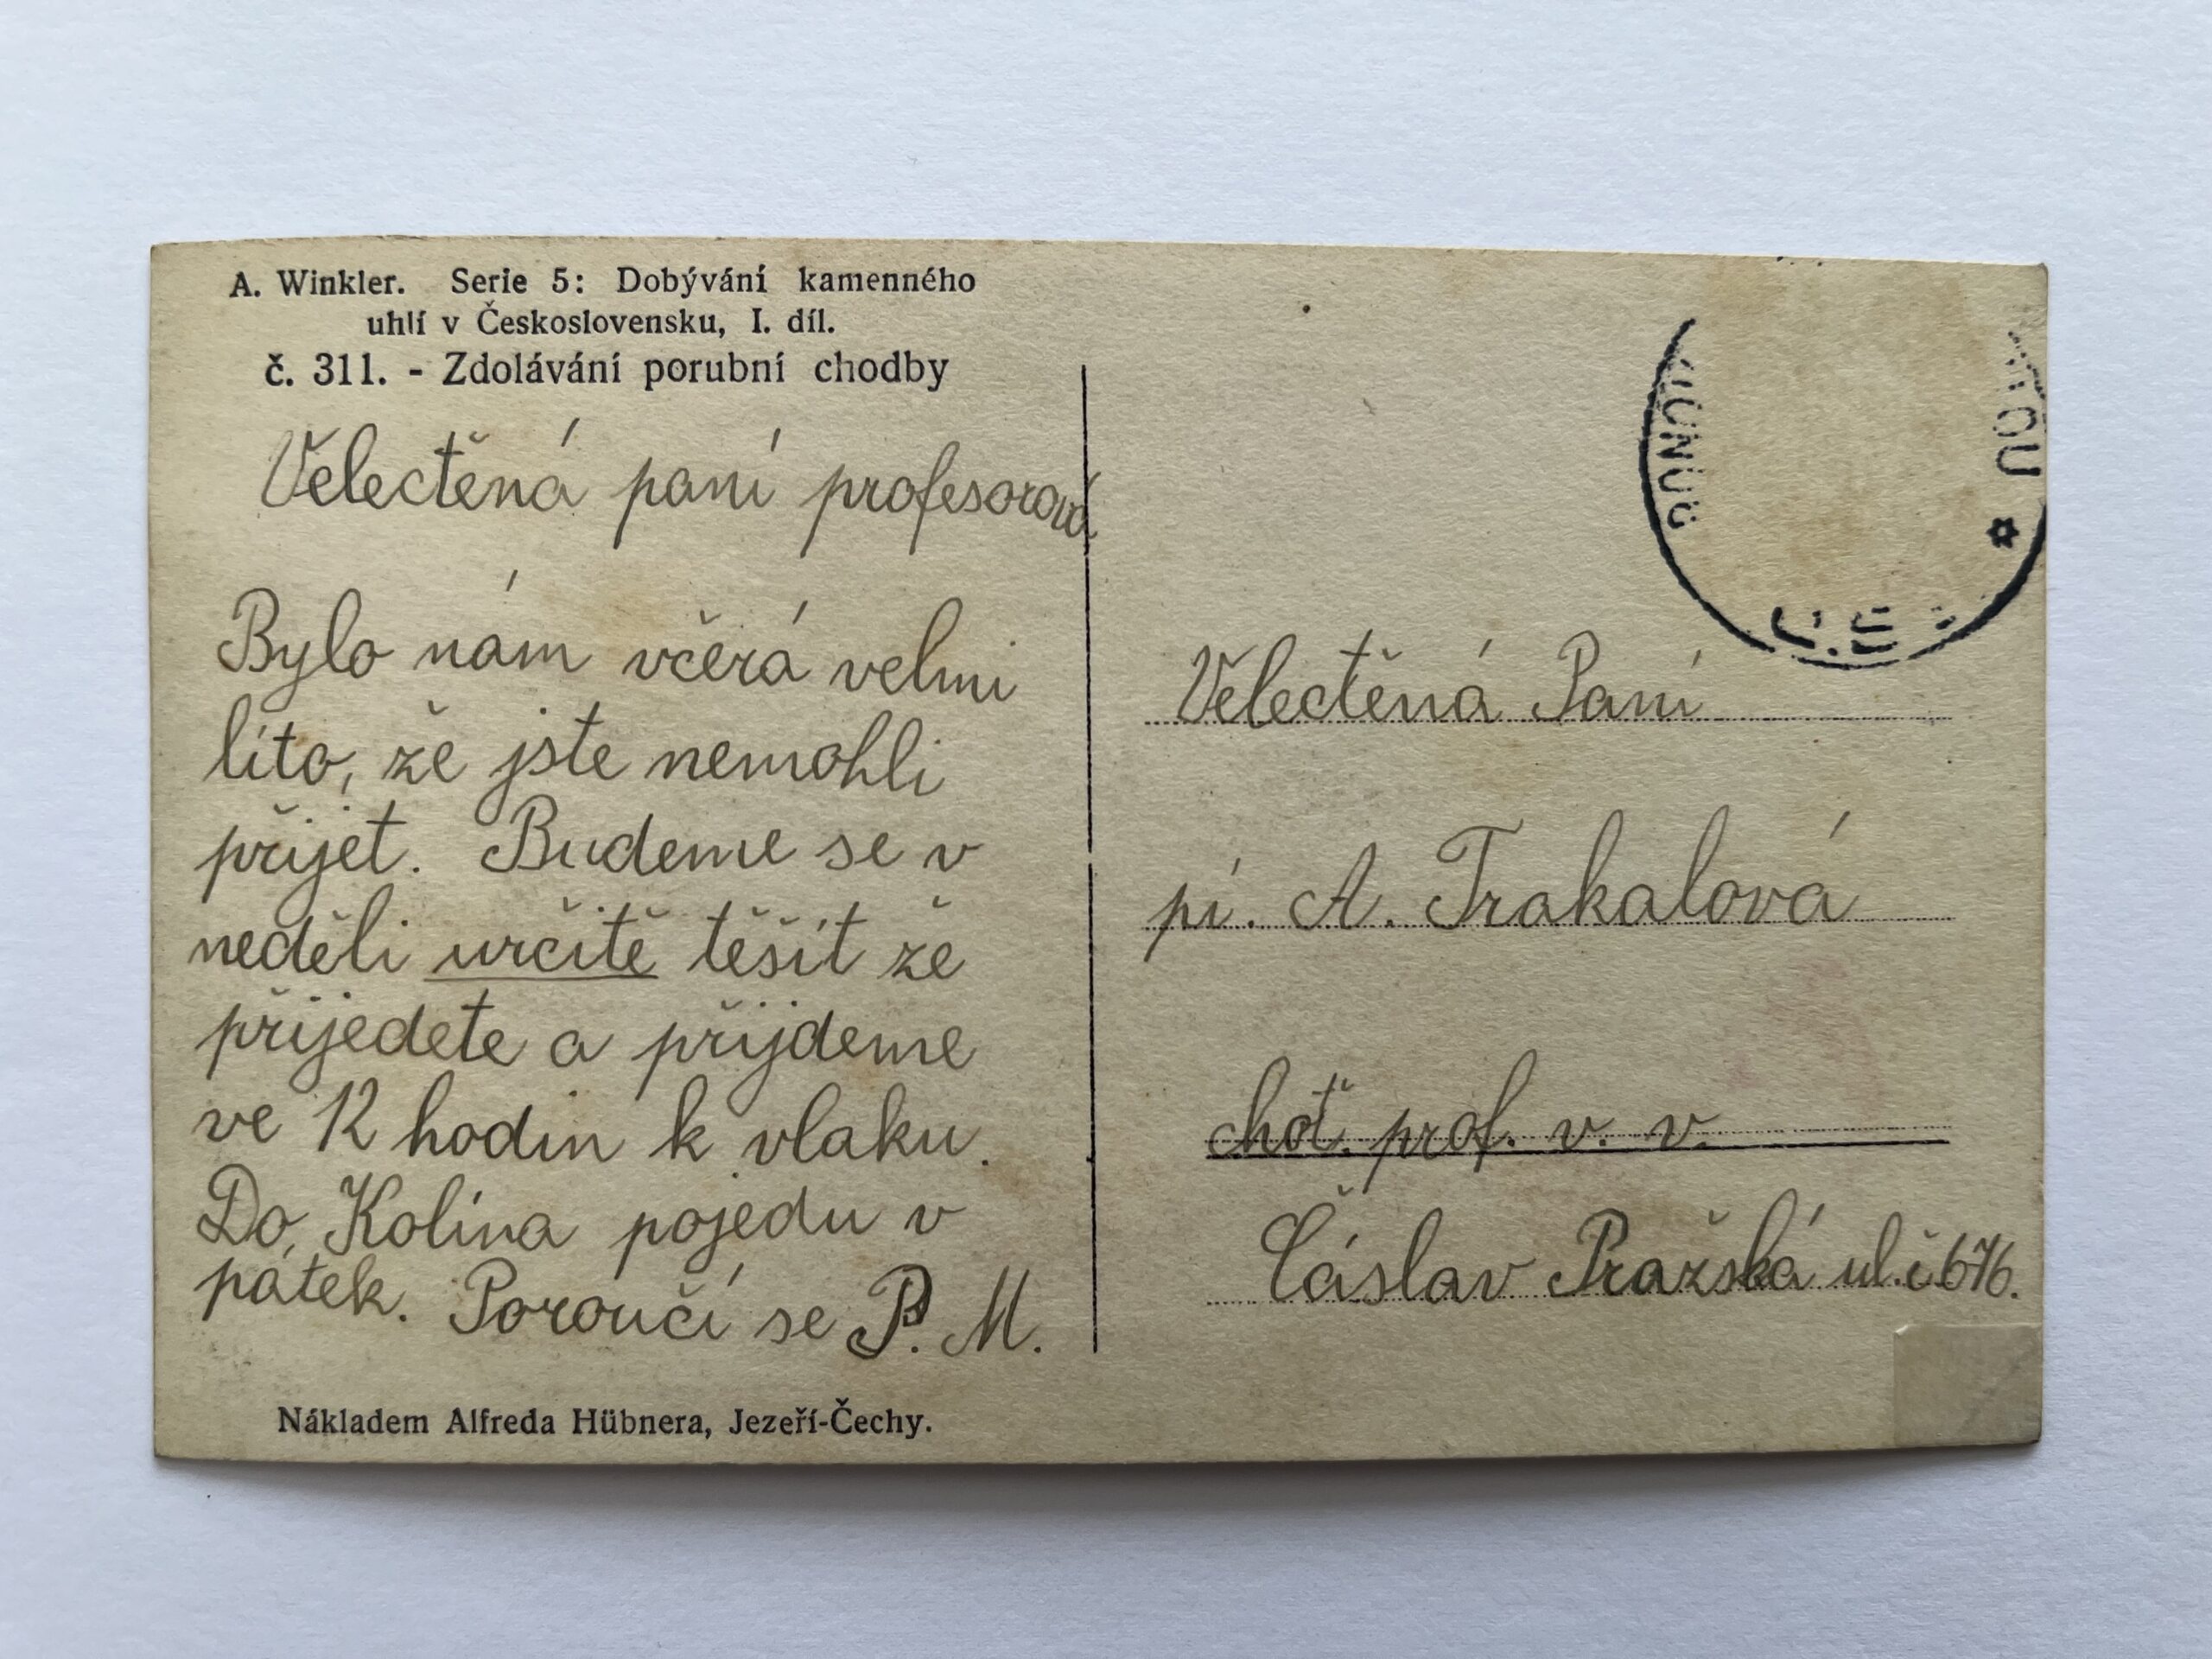 A. Winkler. Serie 5: Dobývání kamenného
uhlí v Československu, I. díl.
č. 311. - Zdolávání porubní chodby
Velectěná paní profesorová
Bylo nám včerá velmi
líto, že jste nemohli
přijet. Budeme se v
neděli určitě těšit že
přijedete a přijdeme
ve 12 hodin k vlaku.
Do Kolína pojedu v
pátek. Poroučí se P. M.
Nákladem Alfreda Hübnera, Jezeří-Čechy.
Velectěná Paní
pí. A. Trakalová
choť. prof. v. v.
Čáslav Pražská ul. č 676.